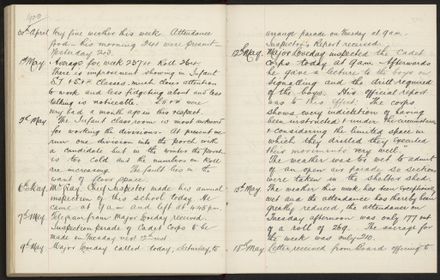 30th April Very fine weather this week. Attendance
good. This morning 240 were present.
Yesterday 243.
1st May Average for week 237.
There is improvement showing in Infant
classes, much closer attention
to work and less fidgeting about and less
talking is noticeable. were
very bad a month ago in this respect.
3rd May The Infant class room is most awkward
for working the divisions. At present we
run one division into the porch with
a candidate but in the winter the porch
is too cold and the numbers on Roll
are increasing. The fault lies in the
want of floor space.
6th May Mr Gray, Chief Inspector made his annual
inspection of this school today. He
came at 9 am and left at 4.45 pm.
7th May Telegram from Major Loveday received.
Inspection parade of Cadet Corps to be
made on Tuesday next 12th inst.
9th May Major Loveday called today, Saturday, to
arrange parade on Tuesday at 9 am.
Inspector's Report received.
12th May Major Loveday inspected the Cadet
Corps today at 9 am. Afterwards
he gave a lecture to the boys on
signalling and the drill required
of the boys. His official report
was to this effect: The corps
shows every indication of having
been instructed & under the circumstances
& considering the limited space in
which they drilled they executed
their movements very well.
The weather was too wet to admit
of an open air parade so sections
were taken in the shelter shed.
15th May The weather this week has been exceptionally
wet and the attendance has thereby been
greatly reduced, the attendance on
Tuesday afternoon was only 177 out
of a roll of 269. The average for
the week was only 210.
18th May Letter received from Board offering to